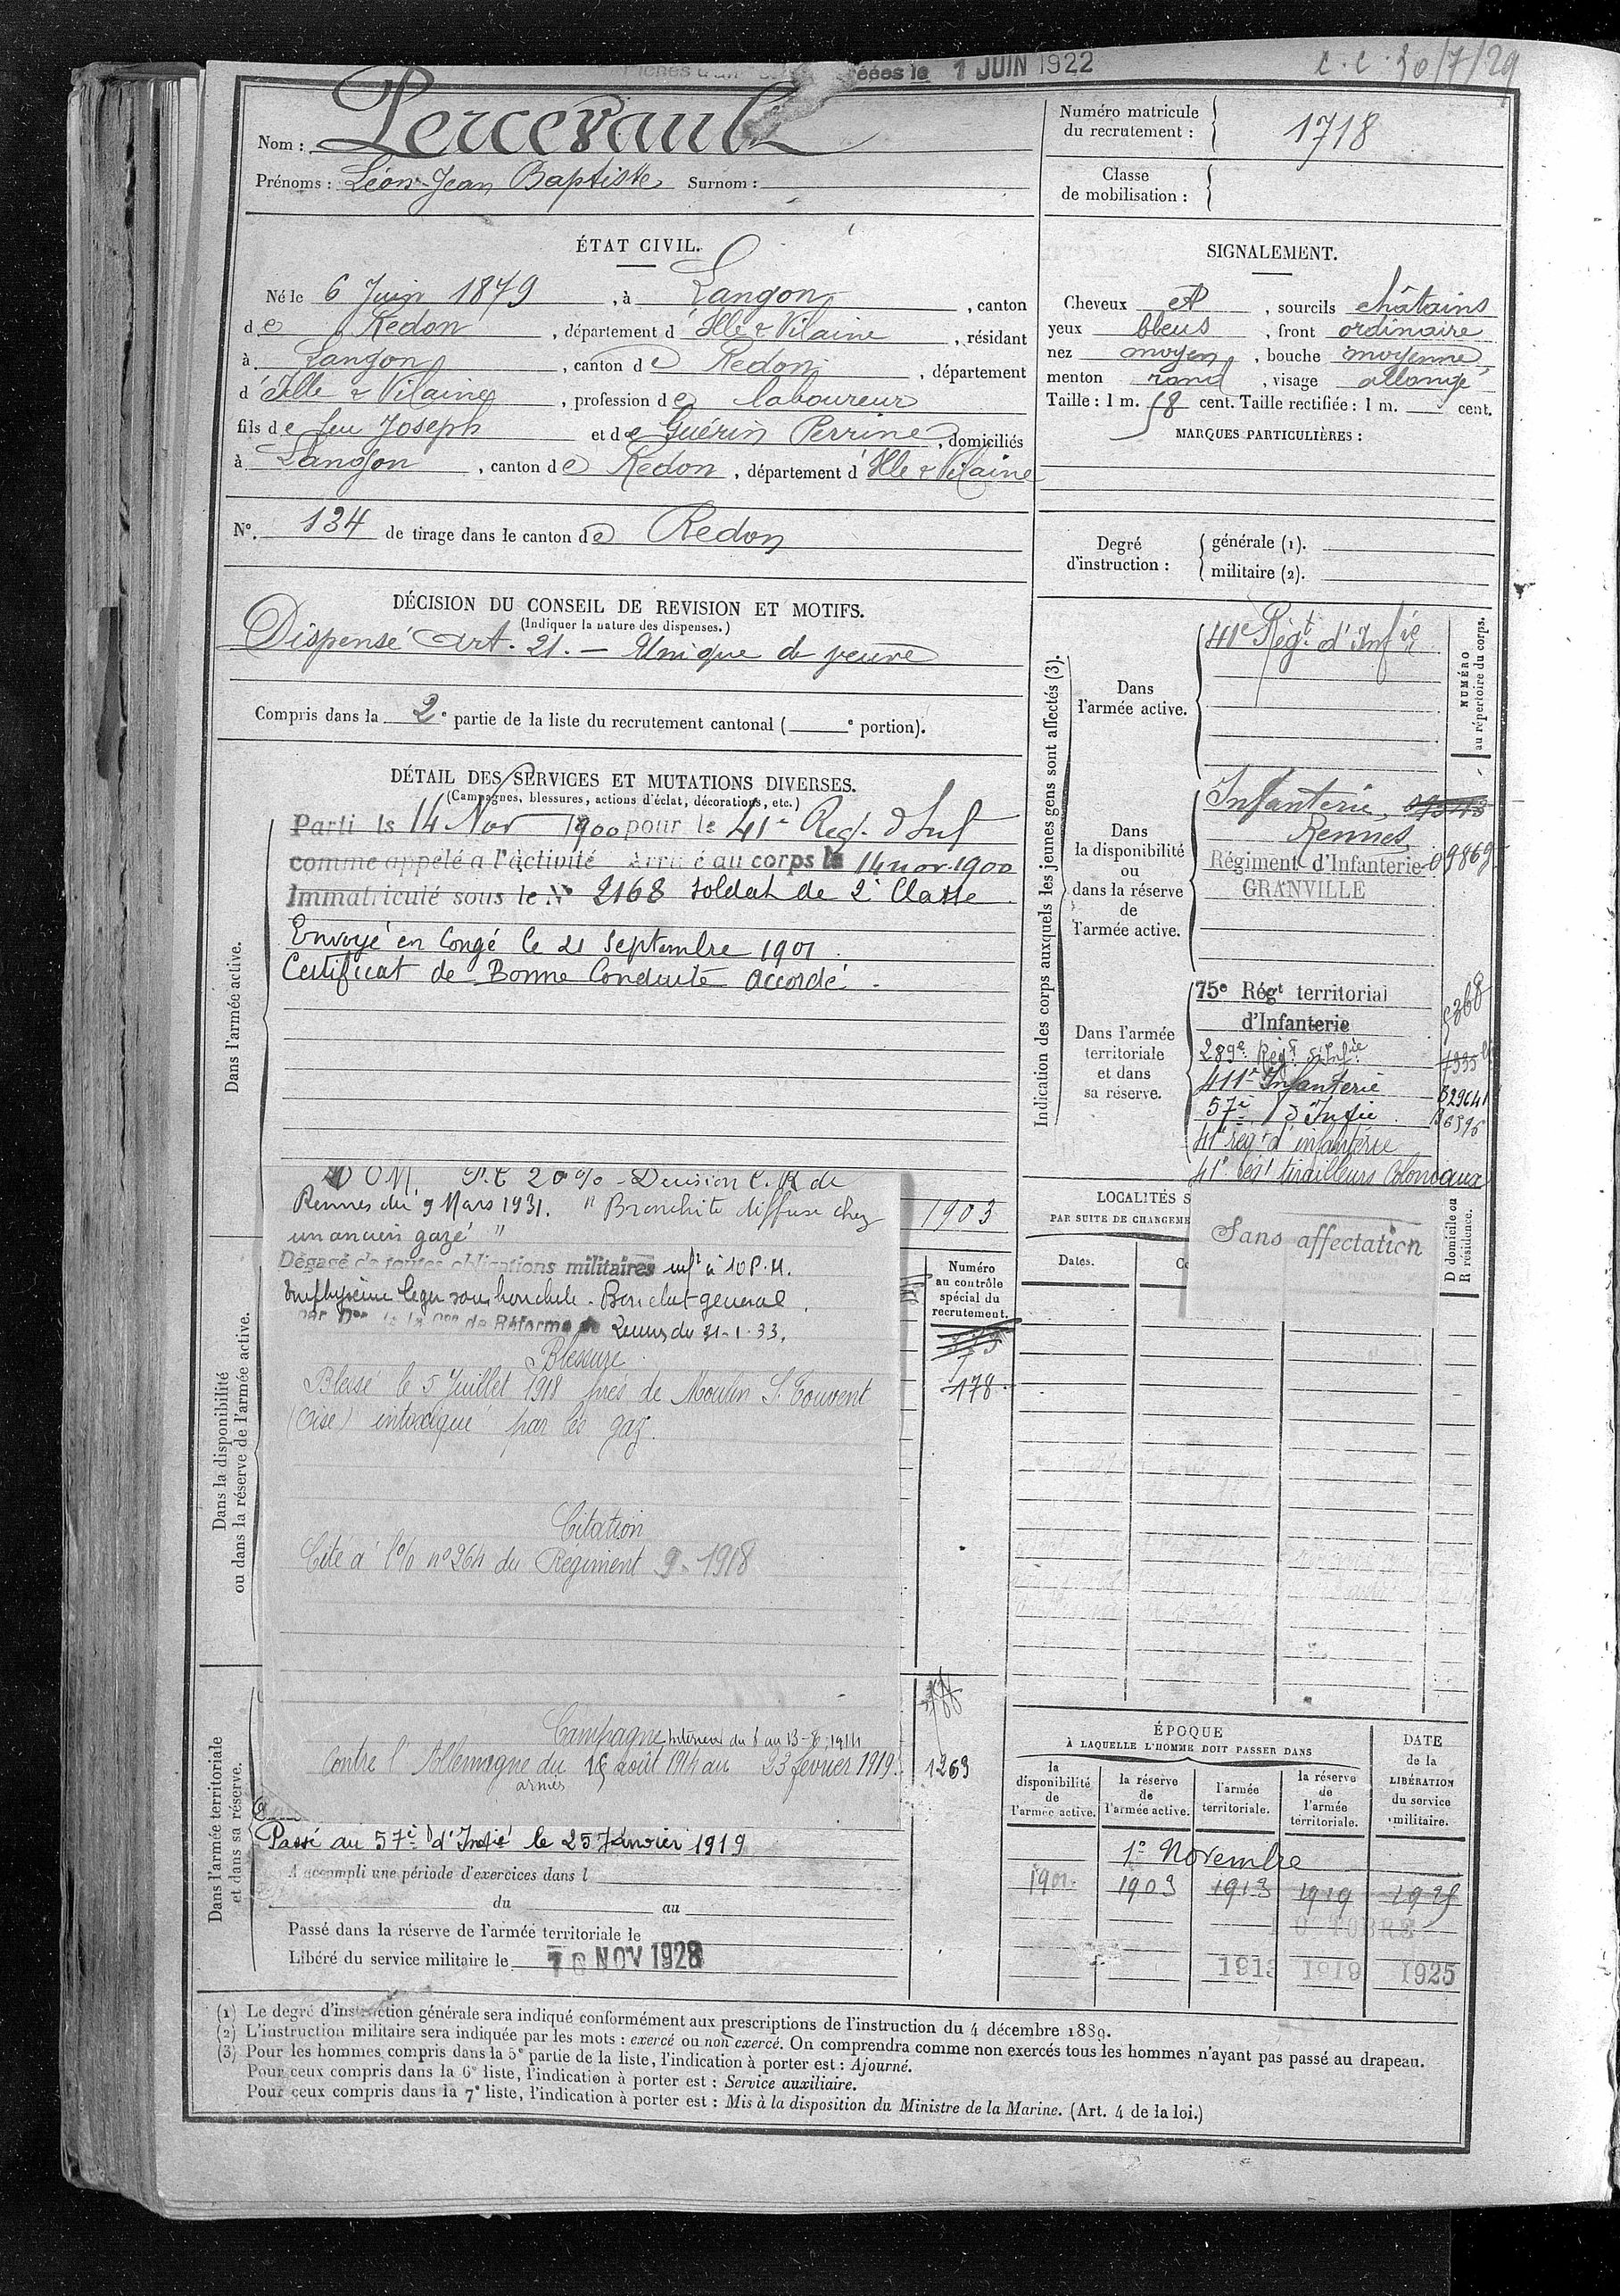 éées le 1 JUIN 1922
C. C. 30/7/29
Nom : Percevault
Prénoms : Léon-Jean Baptiste Surnom :
Numéro matricule
du recrutement : 1718
Classe
de mobilisation :
ÉTAT CIVIL.
Né le 6 Juin 1879, à Langon, canton
de Redon, département d'Ille & Vilaine, résidant
à Langon, canton de Redon, département
d'Ille & Vilaine, profession de laboureur
fils de feu Joseph et de Guérin Perrine, domiciliés
à Langon, canton de Redon, département d'Ille & Vilaine
SIGNALEMENT.
Cheveux et, sourcils châtains
yeux bleus, front ordinaire
nez moyen, bouche moyenne,
menton rond, visage allongé
Taille : 1 m. 58 cent. Taille rectifiée : 1 m. cent.
MARQUES PARTICULIÈRES :
N°. 134 de tirage dans le canton de Redon
Degré
d'instruction :
générale (1).
militaire (2).
DÉCISION DU CONSEIL DE REVISION ET MOTIFS.
(Indiquer la nature des dispenses.)
Dispensé Art. 21. — Unique de veuve
Compris dans la 2e partie de la liste du recrutement cantonal ( e portion).
DÉTAIL DES SERVICES ET MUTATIONS DIVERSES.
(Campagnes, blessures, actions d'éclat, décorations, etc.)
Dans l'armée active.
Parti le 14 Nov 1900 pour le 41e Reg. d'Inf
comme appelé a l'activité Arrivé au corps le 14 nov. 1900
Immatriculé sous le No 2168 soldat de 2e Classe
Envoyé en Congé le 21 Septembre 1901.
Certificat de Bonne Conduite Accordé.
Indication des corps auxquels les jeunes gens sont affectés (3).
NUMÉRO
au répertoire du corps.
Dans
l'armée active.
41e Régt d'Infie
Dans
la disponibilité
ou
dans la réserve
de
l'armée active.
Infanterie
Rennes
Régiment d'Infanterie 09869
GRANVILLE
Dans l'armée
territoriale
et dans
sa réserve.
75e Régt territorial
d'Infanterie 5268
289e Régt d'Infie
411e Infanterie
57e d'Infie
41e regt d'infanterie
41e bat tirailleurs Coloniaux
P.C 20% - Decision C.R de
Rennes du 9 Mars 1931. "Bronchite diffuse chez
un ancien gazé"
Dégagé de toutes obligations militaires inft à 10 P.H.
Emphysème léger sans bronchite. Bon état general.
par Don de la Con de Réforme de Rennes du 31-1-33.
Blessure
Blessé le 5 Juillet 1918 près de Moulin S. Touvent
(Oise) intoxiqué par les gaz.
Citation
Cité à l'o/o no 264 du Régiment 9-1918
Campagne Intérieur du 8 au 13-8-1914
Contre l'Allemagne du 15 août 1914 au 23 fevrier 1919.
armées
Dans la disponibilité
ou dans la réserve de l'armée active.
1903
Numéro
au contrôle
spécial du
recrutement.
178
1263
LOCALITÉS S
PAR SUITE DE CHANGEME
Sans affectation
D domicile ou
R résidence.
Dates.
Dans l'armée territoriale
et dans sa réserve.
Passé au 57e d'Infie le 25 Janvier 1919
A accompli une période d'exercices dans l
du au
Passé dans la réserve de l'armée territoriale le
Libéré du service militaire le 10 NOV 1928
ÉPOQUE
À LAQUELLE L'HOMME DOIT PASSER DANS
la
disponibilité
de
l'armée active.
la réserve
de
l'armée active.
l'armée
territoriale.
la réserve
de
l'armée
territoriale.
DATE
de la
LIBÉRATION
du service
militaire.
1er Novembre
1901 1903 1913 1919 1925
1 OCTOBRE
1913 1919 1925
(1) Le degré d'instruction générale sera indiqué conformément aux prescriptions de l'instruction du 4 décembre 1889.
(2) L'instruction militaire sera indiquée par les mots : exercé ou non exercé. On comprendra comme non exercés tous les hommes n'ayant pas passé au drapeau.
(3) Pour les hommes compris dans la 5e partie de la liste, l'indication à porter est : Ajourné.
Pour ceux compris dans la 6e liste, l'indication à porter est : Service auxiliaire.
Pour ceux compris dans la 7e liste, l'indication à porter est : Mis à la disposition du Ministre de la Marine. (Art. 4 de la loi.)